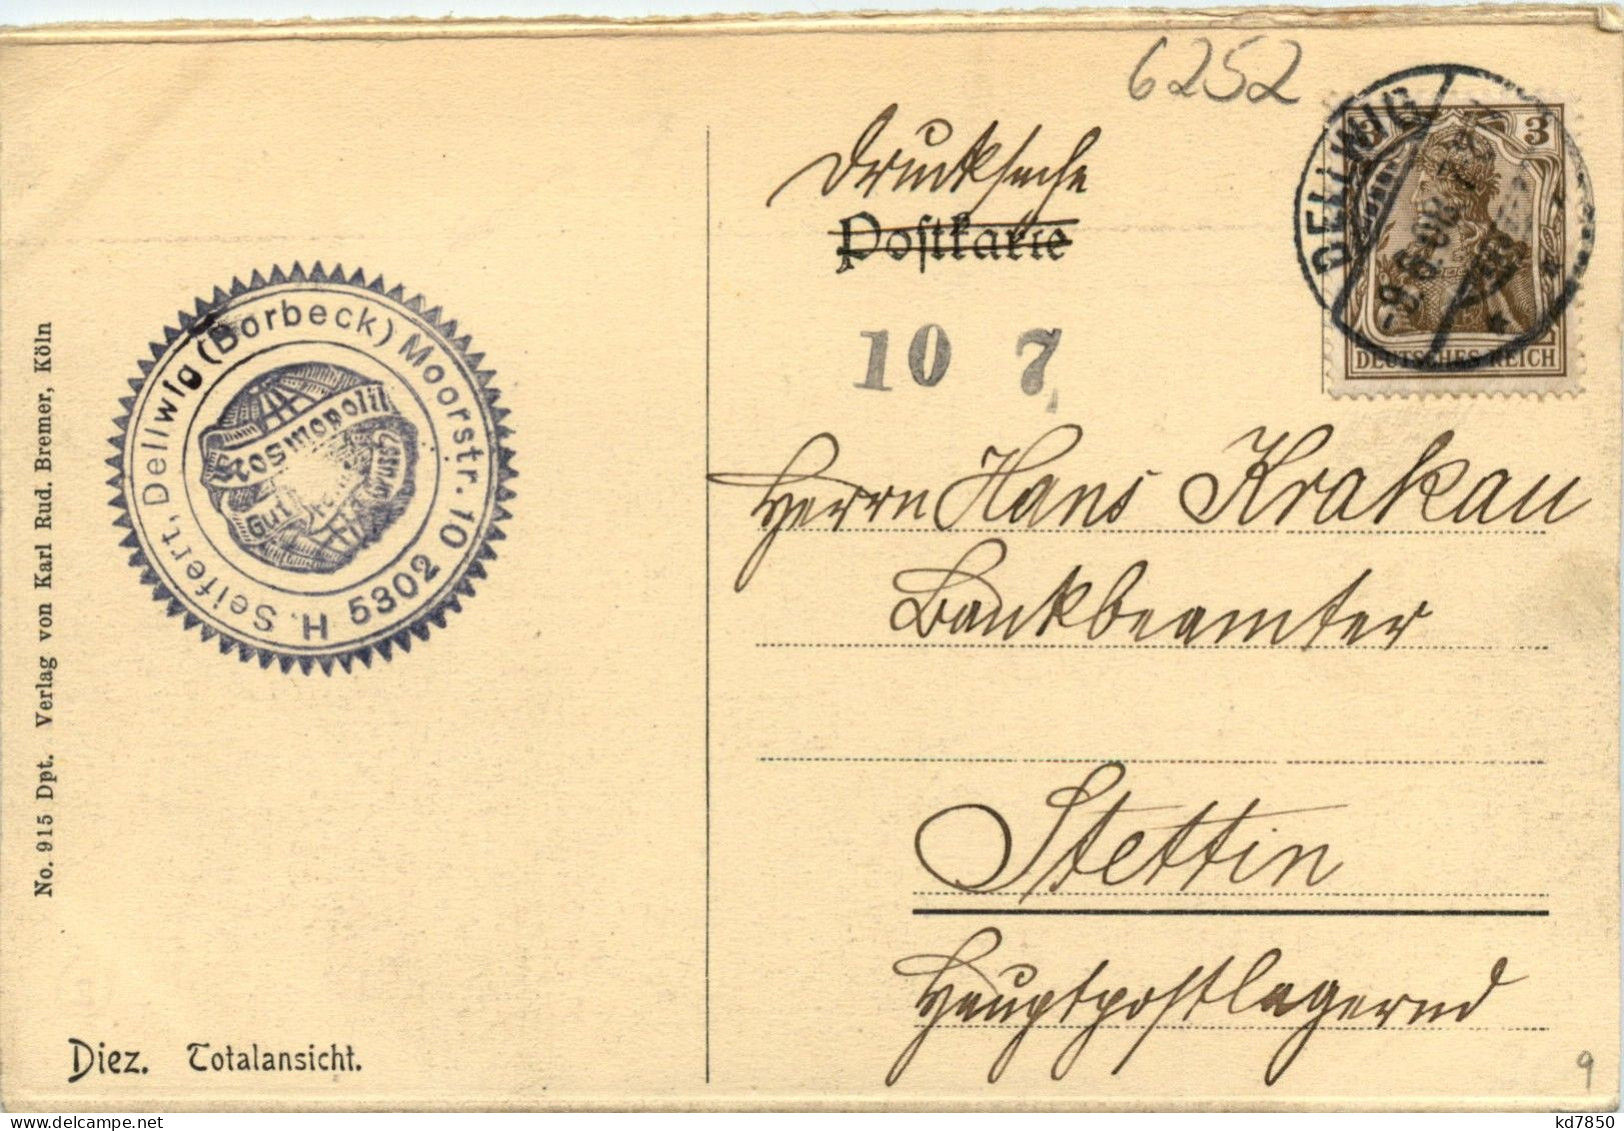 6252
Drucksache
Postkarte
DELLWIG
3
DEUTSCHES REICH
10 7
H. Seifert, Dellwig (Borbeck) Moorstr. 10
H 5302
Kosmopolit
Gut
Herrn Hans Krakau
Bankbeamter
Stettin
Hauptpostlagernd
No. 915 Dpt. Verlag von Karl Rud. Bremer, Köln
Diez. Totalansicht.
9
kd7850